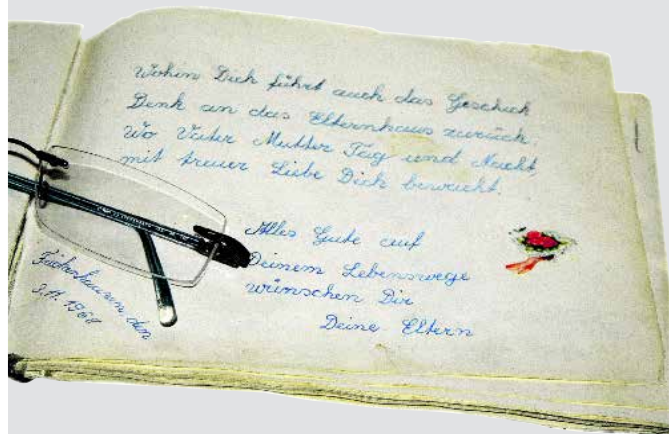 Wohin Dich führt auch das Geschick
Denk an das Elternhaus zurück,
Wo Vater Mutter Tag und Nacht,
mit treuer Liebe Dich bewacht.
Alles Gute auf
Deinem Lebenswege
wünschen Dir
Deine Eltern
den
1968